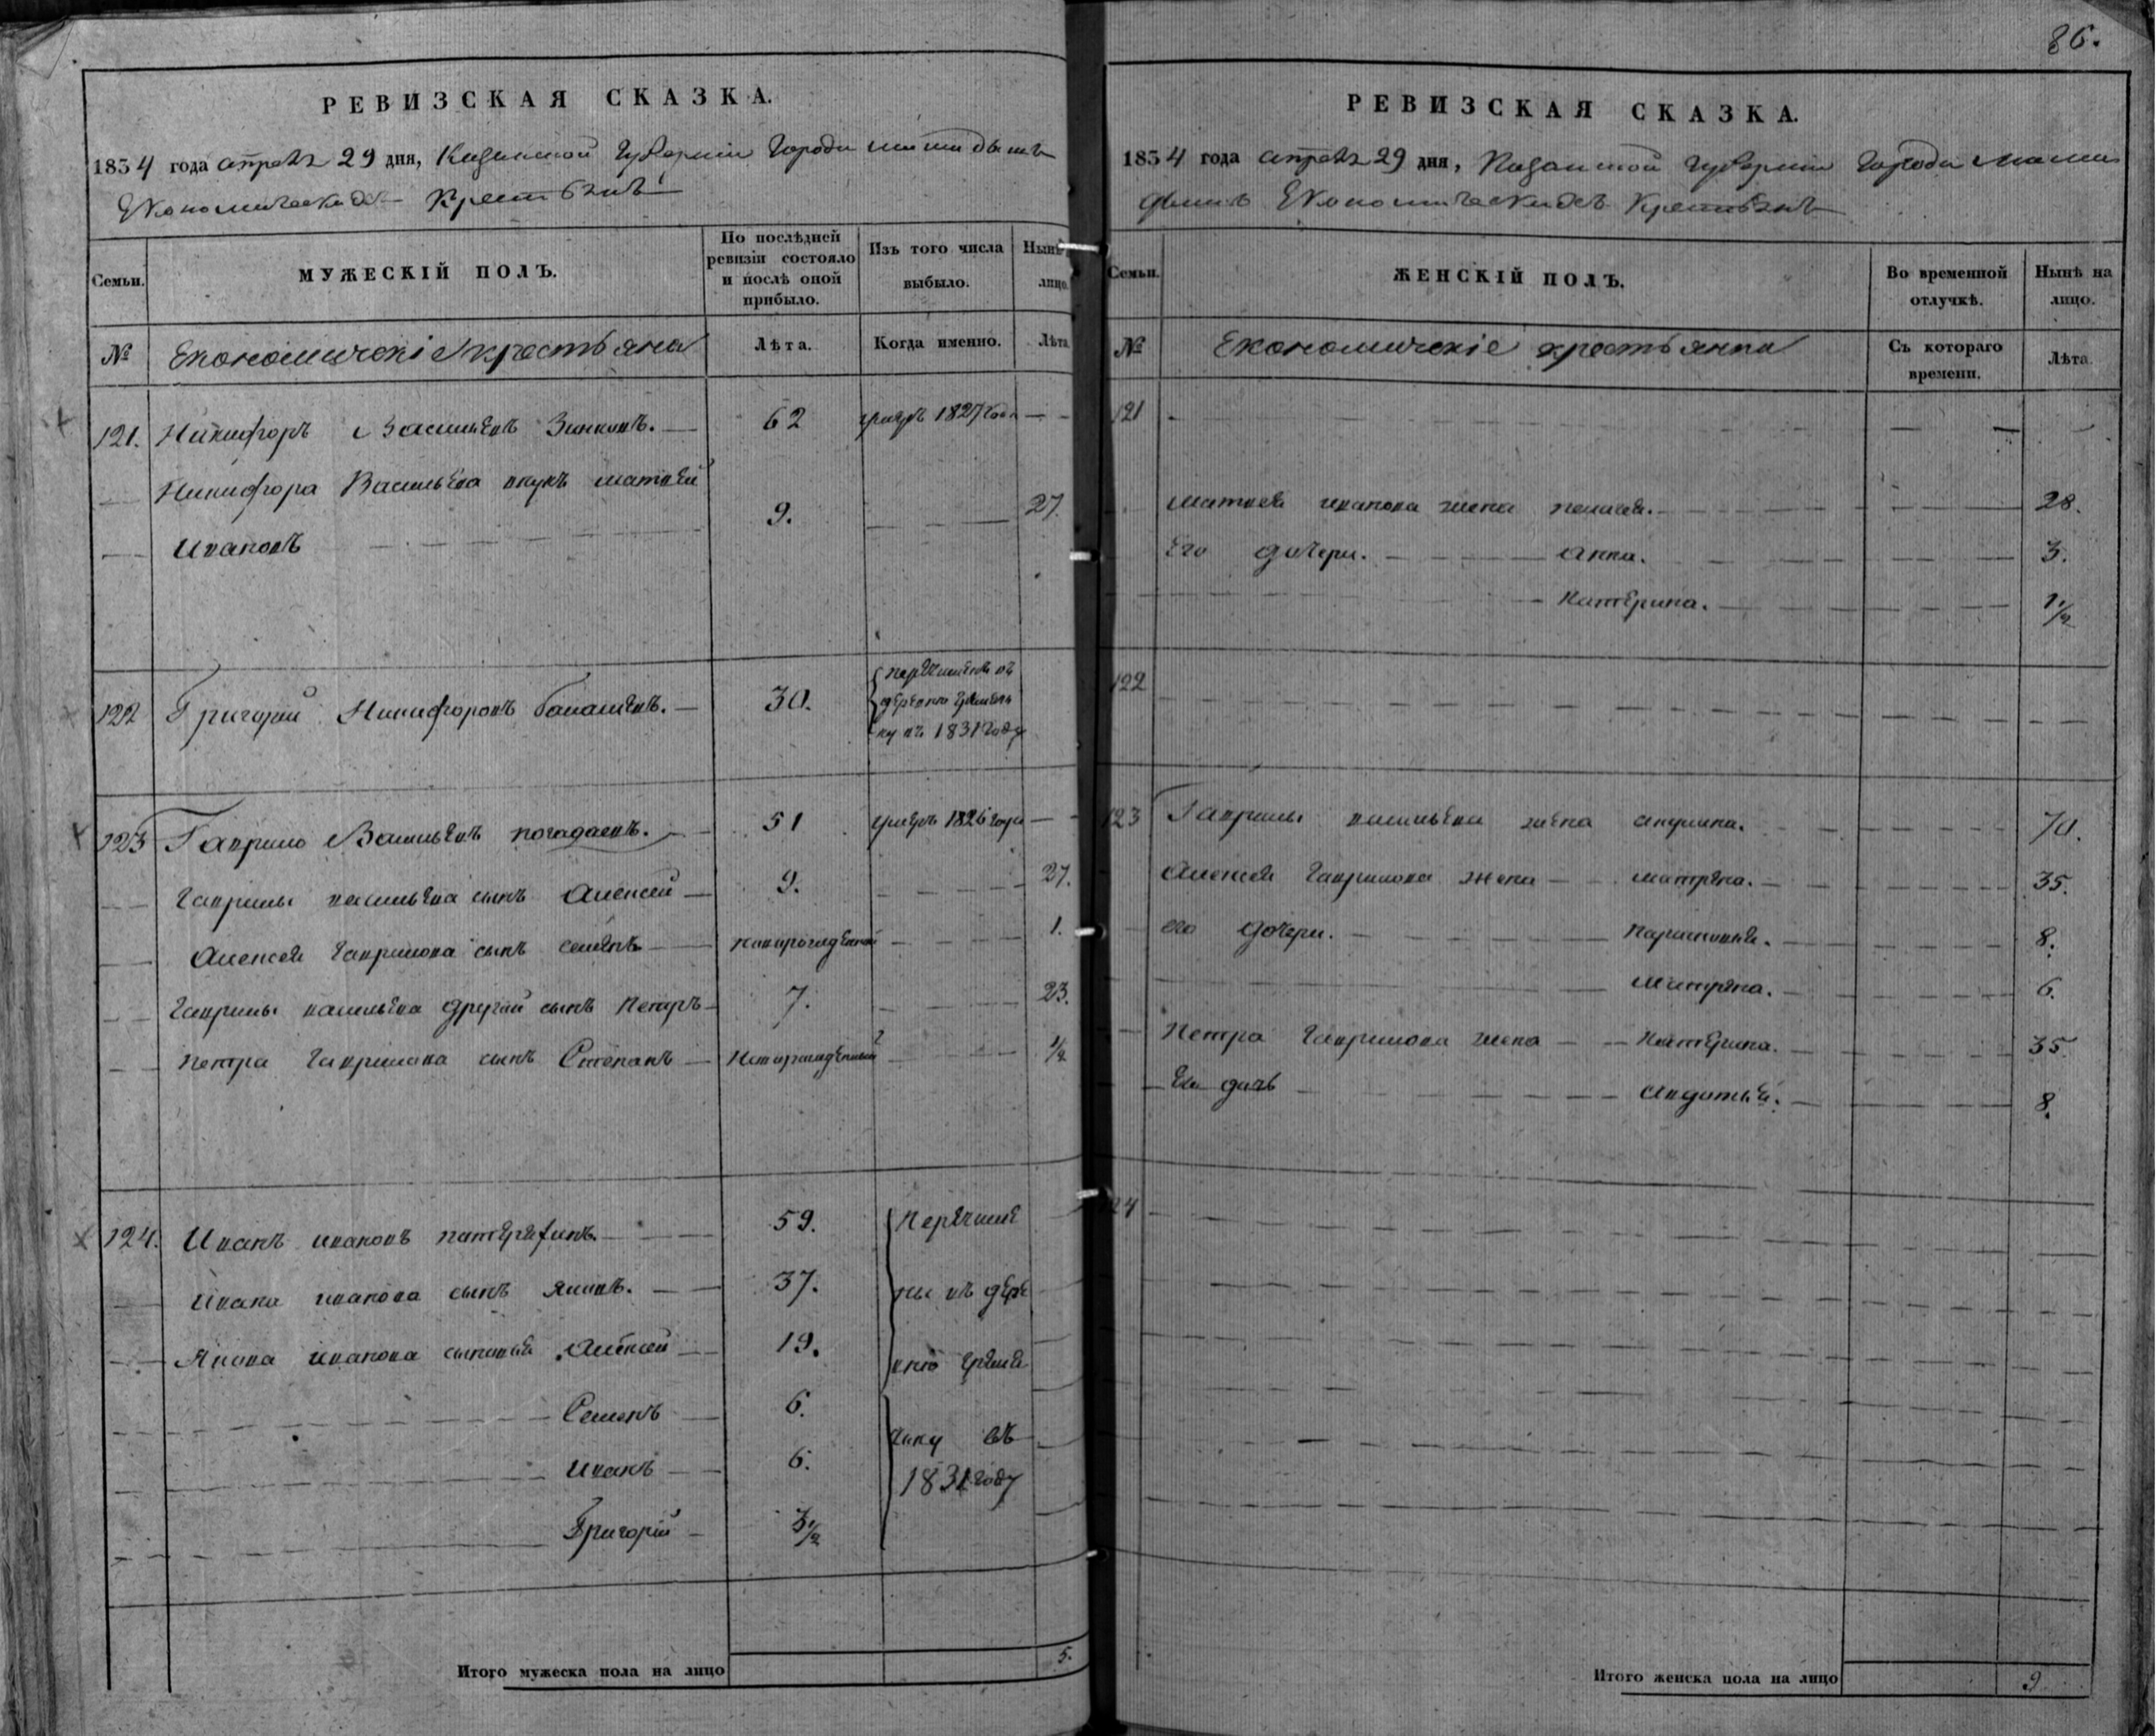 86.
РЕВИЗСКАЯ СКАЗКА.
1834 года апреля 29 дня, Казанской Губернии Города
Економическихъ Крестьянъ
Семьи.
МУЖЕСКІЙ ПОЛЪ.
По послѣдней ревизіи состояло и послѣ оной прибыло.
Изъ того числа выбыло.
Нынѣ лицо.
№ Економическіе крестьяна
Лѣта. Когда именно. Лѣта
121. Никифоръ Васильевъ Зинковъ. 62 умеръ 1827 года
Никифора Васильева внукъ матвей
Ивановъ 9. 27.
122 Григорий Никифоровъ 30. перечисленъ въ
деревню
въ 1831 году
123 Гаврило Васильевъ 51 умеръ 1826 года
Гаврилы васильева сынъ Алексей 9. 27.
Алексея Гаврилова сынъ семенъ новорожденной 1.
Гаврилы васильева другой сынъ Петръ 7. 23.
петра Гаврилова сынъ Степанъ Новорожденный 1/2
124. Иванъ ивановъ 59. Перечисле
Ивана иванова сынъ яковъ. 37. ны въ дере
Якова иванова сыновья Алексей 19. вню
Семенъ 6.
въ
Иванъ 6. 1831 году
Григорій 3 1/2
Итого мужеска пола на лицо 5.
РЕВИЗСКАЯ СКАЗКА.
1834 года апреля 29 дня, Казанской Губернии Города Мама
дышъ Економическихъ Крестьянъ
Семьи.
ЖЕНСКІЙ ПОЛЪ.
Во временной отлучкѣ.
Нынѣ на лицо.
№ Економическіе крестьянки
Съ котораго времени.
Лѣта.
121
матвея иванова жена 28.
Его дочери. Анна. 3.
Катерина. 1 1/2
122
123 Гаврилы васильева жена 70.
Алексея Гаврилова жена матрена. 35.
его дочери. Парасковья. 8.
Матрена. 6.
Петра Гаврилова жена Катерина. 35.
Ево дочь Авдотья. 8.
124
Итого женска пола на лицо 9